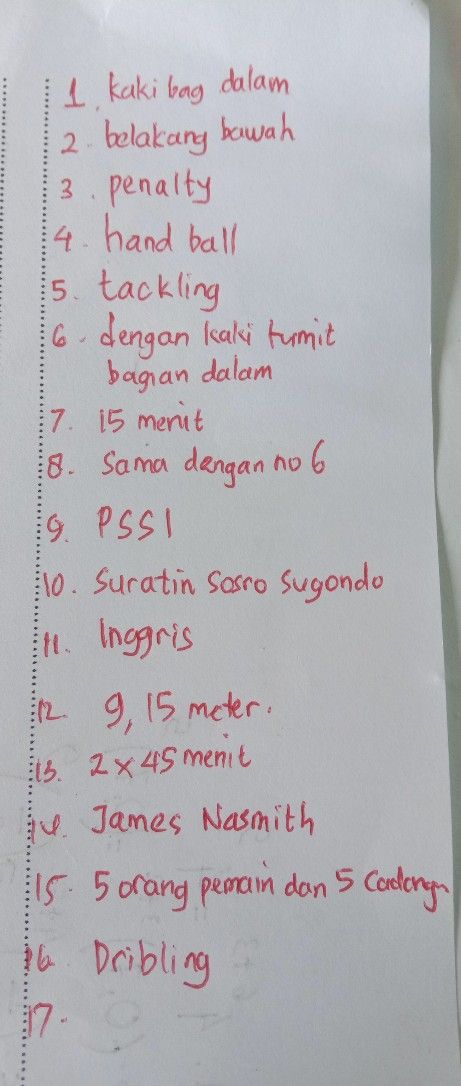 1. kaki bag dalam
2. belakang bawah
3. penalty
4. hand ball
5. tackling
6. dengan kaki tumit
bagian dalam
7. 15 menit
8. Sama dengan no 6
9. PSSI
10. Suratin Sosro Sugondo
11. Inggris
12. 9,15 meter.
13. 2 x 45 menit
14. James Nasmith
15. 5 orang pemain dan 5 Cadangn
16. Dribling
17.